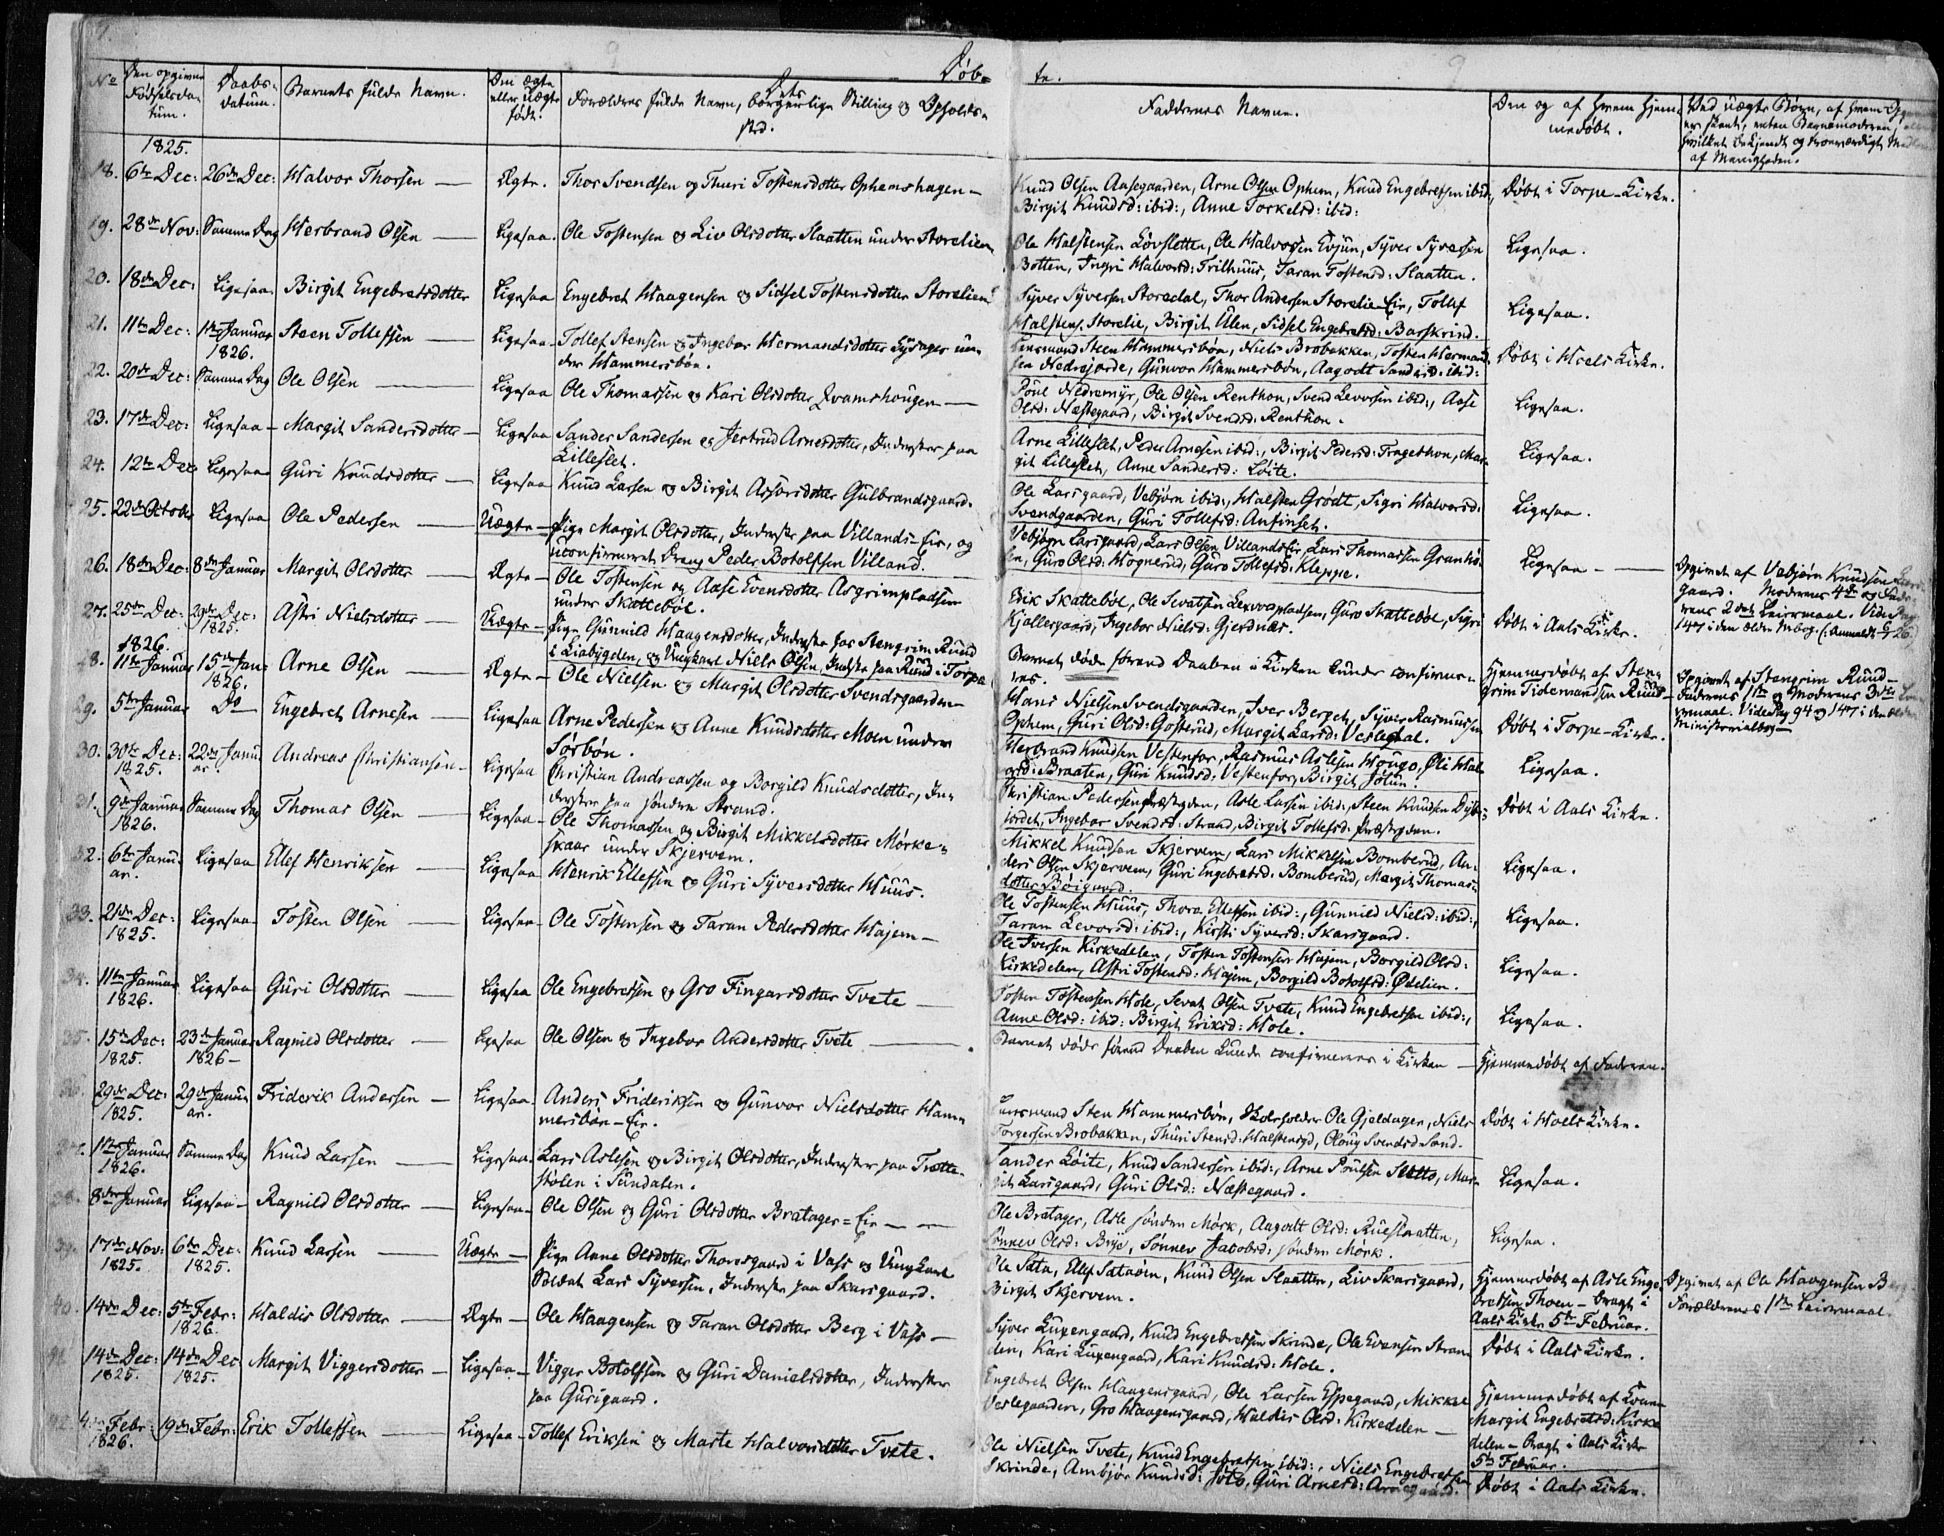 Døb-
te.
No
Den opgivne Fødselsda-tum.
Daabs-datum.
Barnets fulde Navn.
Om ægte eller uægte født.
Forældrenes fulde Navn, Dets borgerlige Stilling og Opholds-sted.
Faddernes Navne.
Om og af hvem hjem-medøbt.
Ved uægte Børn, af hvem
1825.
18. 6te Dec: 26de Dec: Halvor Thorsen — Ægte. Thor Svendsen og Thuri Tostensdotter Ophemshagen —
Knud Olsen Aasegaarden, Arne Olsen Ophem, Knud Engebretsen ibid:,
Birgit Knudsd: ibid:, Anne Torkelsd: ibid:
Døbt i Torpe-Kirke.
19. 28de Nov: Samme Dag Herbrand Olsen — Ligesaa. Ole Tostensen og Liv Olsdotter Slaatten under Storelien
Ole Halstensen Løvsletten, Ole Halvorsen Evjun, Syver Syversen
Botten, Ingri Halvorsd: Trilhuus, Taran Tostensd: Slaatten.
Ligesaa.
20. 18de Dec: Ligesaa Birgit Engebretsdotter Ligesaa Engebret Haagensen og Sidsel Tostensdotter Storelien
Syver Syversen Storedal, Thor Andersen Storelie-Eie, Tollef
Halstens. Storelie, Birgit Ulen, Sidsel Engebretsd: Barskrind.
Ligesaa.
21. 11te Dec: 1te Januar 1826. Steen Tollefsen — Ligesaa- Tollef Stensen og Ingebor Hermandsdotter un-
der Hammersbøn.
Lensmand Steen Hammersbøn, Niels Brobakken, Tosten Hermand-
sen Nedregjorde, Gunvor Hammersbøn, Aagodt Sandersd: ibid:
Døbt i Hoels Kirke.
22. 20de Dec: Samme Dag Ole Olsen — Ligesaa Ole Thomassen og Kari Olsdotter Qvamshougen —
Poul Nedremyr, Ole Olsen Renthon, Svend Levorsen ibid:, Aase
Olsd: Næstegaard, Birgit Svendsd: Renthon.
Ligesaa.
23. 17de Dec: Ligesaa — Margit Sandersdotter — Ligesaa Sander Sandersen og Jertrud Arnesdotter, Inderster paa
Lilleslet.
Arne Lilleslet, Peder Arnesen ibid:, Birgit Pedersd: Tragethon, Mar-
git Lilleslet, Anne Sandersd: Løite.
Ligesaa.
24. 12te Dec Ligesaa Guri Knudsdotter — Ligesaa Knud Larsen og Birgit Assorsdotter Gulbrandsgaard.
Ole Larsgaard, Vebjørn ibid:, Halsten Grødt, Sigri Halvorsd:
Svendgaarden, Guri Tollefsd: Anfinset.
Ligesaa.
25. 22de October Ligesaa Ole Pedersen — Uægte — Pige Margit Olsdotter, Inderste paa Villands-Eie, og
uconfirmeret Dreng Peder Botolfsen Villand.
Vebjørn Larsgaard, Lars Olsen Villands Eie, Lars Thomassen Granhø-
en, Guro Olsd: Hognerud, Guro Tollefsd: Kleppe.
Ligesaa — —
Opgivet af Vebjørn Knudsen Lars-
gaard. Moderens 4de og Fade-
rens 2det Leiermaal. Vide Pag
147 i den ældre Mbog (: Anmeldt 6/26)
26. 18de Dec: 8de Januar Margit Olsdotter — Ægte — Ole Tostensen og Aase Evensdotter Asgrimpladsen
under Skattebøl.
Erik Skattebøl, Ole Sevatsen Levorspladsen, Guro Skattebøl, Sigri
Kjallergaard, Ingebor Nielsd: Gjerdnæs.
Døbt i Aals Kirke.
27. 25de Dec: 29de Dec: 1825. Astri Nielsdotter — Uægte — Pige Gunnild Haagensdotter, Inderste hos Stengrim Ruud
i Liabygden, og Ungkarl Niels Olsen, Inderste paa Ruud i Torpe
Barnet døde førend Daaben i Kirken kunde confirme-
res.
Hjemmedøbt af Sten-
grim Tidemandsen Ruud —
Opgivet af Stengrim Ruud —
Faderens 1te og Moderens 3die Lei-
ermaal. Vide Pag 94 og 147 i den ældre
Ministerialbog —
1826.
28. 11te Januar 15de Jan: 1826. Arne Olsen — Ægte — Ole Nielsen og Margit Olsdotter Svendsgaarden —
Hans Nielsen Svendsgaarden, Iver Berget, Syver Rasmussen
Ophem, Guri Olsd: Gosterud, Margit Larsd: Veslegal.
Døbt i Torpe-Kirke.
29. 5te Januar Do Engebret Arnesen — Ligesaa Arne Pedersen og Anne Knudsdotter Moen under
Sørbøn.
Herbrand Knudsen Vestenfor, Rasmus Aslesen Hougo, Øli Hal-
vorsd: Braaten, Guri Knudsd: Vestenfor, Birgit Jøtun.
Ligesaa.
30. 30te Dec: 1825. 22de Janu-ar. Andreas Christiansen — Ligesaa Christian Andreassen og Borgild Knudsdotter, In-
derster paa søndre Strand.
Christian Pedersen Præstegden, Asle Larsen ibid:, Steen Knudsen Dyb-
jordet, Ingebor Svendsd: Strand, Birgit Tollefsd: Præstegden.
Døbt i Aals Kirke.
31. 9de Januar 1826. Samme Dag Thomas Olsen — Ligesaa — Ole Thomassen og Birgit Mikkelsdotter Mørke-
skaar under Skjervem.
Mikkel Knudsen Skjervem, Lars Mikkelsen Bomberud, An-
ders Olsen Skjervem, Guri Engebretsd: Bomberud, Margit Thomas-
dotter Bøigaard.
Ligesaa.
32. 6te Janu-ar. Ligesaa Ellef Henriksen — Ligesaa Henrik Ellefsen og Guri Syversdotter Huus.
Ole Tostensen Huus, Thore Ellefsen ibid:, Gunnild Nielsd: ibid:,
Taran Levorsd: ibid:, Kirsti Syversd: Skarsgaard.
Ligesaa.
33. 21de Dec: 1825. Ligesaa — Tosten Olsen — Ligesaa — Ole Tostensen og Taran Pedersdotter Hajem —
Ole Iversen Kirkedelen, Tosten Tostensen Hajem, Borgild Olsd:
Kirkedelen, Astri Tostensd: Hajem, Borgild Botolfsd: Ødelien.
Ligesaa.
34. 11te Januar 1826. Ligesaa Guri Olsdotter — Ligesaa Ole Engebretsen og Gro Fingarsdotter Tvete —
Tosten Tostensen Hole, Sevat Olsen Tvete, Knud Engebretsen ibid:,
Anne Olsd: ibid: Birgit Eriksd: Hole.
Ligesaa.
35. 15de Dec: 1825. 23de Januar 1826 — Ragnild Olsdotter — Ligesaa Ole Olsen og Ingebor Andersdotter Tvete —
Barnet døde førend Daaben kunde confirmeres i Kirken —
Hjemmedøbt af Faderen.
36. 29de Dec: 1825. 29de Janu-ar. Friderik Andersen — Ligesaa. Anders Frideriksen og Gunvor Nielsdotter Ham-
mersbøn-Eie.
Lensmand Sten Hammersbøn, Skoleholder Ole Gjeldager, Niels
Torgersen Brobakken, Thuri Stensd: Halstensgd, Oloug Svendsd Sand.
Døbt i Hoels Kirke.
37. 1te Januar 1826. Samme Dag Knud Larsen — Ligesaa. Lars Aslesen og Birgit Olsdotter, Inderster paa Trætte-
stølen i Sundalen.
Sander Løite, Knud Sandersen ibid:, Arne Poulsen Sletto, Mar-
git Larsgaard, Guri Olsd: Næstegaard.
Ligesaa.
38. 8de Januar Ligesaa — Ragnild Olsdotter — Ligesaa — Ole Olsen og Guri Olsdotter Bratager-Eie — —
Ole Bratager, Asle søndre Mørk, Aagodt Olsd: Rueslaatten,
Sønnev Olsd: Brye, Sønnev Jacobsd: søndre Mørk.
Ligesaa.
39. 17de Nov: 1825. 6te Dec: 1825. Knud Larsen — Uægte — Pige Anne Olsdotter Thoresgaard i Vats og Ungkarl
Soldat Lars Syversen, Inderste paa Skarsgaard.
Ole Sata, Ellef Sataøien, Knud Olsen Slaatten, Liv Skarsgaard,
Birgit Skjervem.
Hjemmedøbt af Asle Enge-
bretsen Thoen — bragt i
Aals Kirke 5te Februar.
Opgivet af Ole Haagensen Berg
Forældrenes 1te Leiermaal.
40. 14de Dec: 5te Febr: 1826. Haldis Olsdotter — Ægte — Ole Haagensen og Taran Olsdotter Berg i Vats —
Syver Luxengaard, Knud Engebretsen Skrinde, Ole Evensen Stran-
den, Kari Luxengaard, Kari Knudsd: Hole.
Døbt i Aals Kirke.
41. 14de Dec: 1825. 14de Dec 1825. Margit Viggersdotter — Ligesaa — Vigger Botolfsen og Guri Danielsdotter, Inderster
paa Gurigaard.
Engebret Olsen Haagensgaard, Ole Larsen Espegaard, Mikkel
Veslegaarden, Gro Haagensgaard, Haldis Olsd: Kirkedelen —
Hjemmedøbt af Kone
Margit Engebretsd: Kirke-
delen — bragt i Aals Kirke
5te Februar.
42. 4de Febr: 1826. 19de Febr: Erik Tollefsen — Ligesaa — Tollef Eriksen og Marte Halvorsdotter Tvete.
Ole Nielsen Tvete, Knud Engebretsen ibid:, Niels Engebretsen
Skrinde, Ambjør Knudsd: Joto, Guri Arnesd:
Døbt i Aals Kirke.